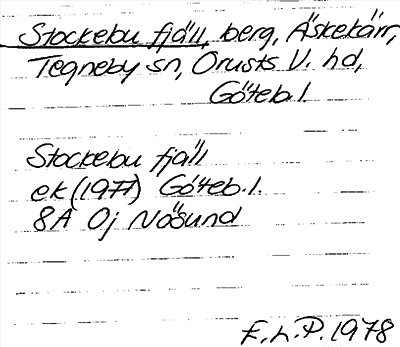 Stockebu fjäll, berg, Äskekärr,
Tegneby sn, Orusts V. hd,
Göteb.l.
Stockebu fjäll
ek (1977) Göteb.l.
8A 0j Nösund
F.L.P. 1978